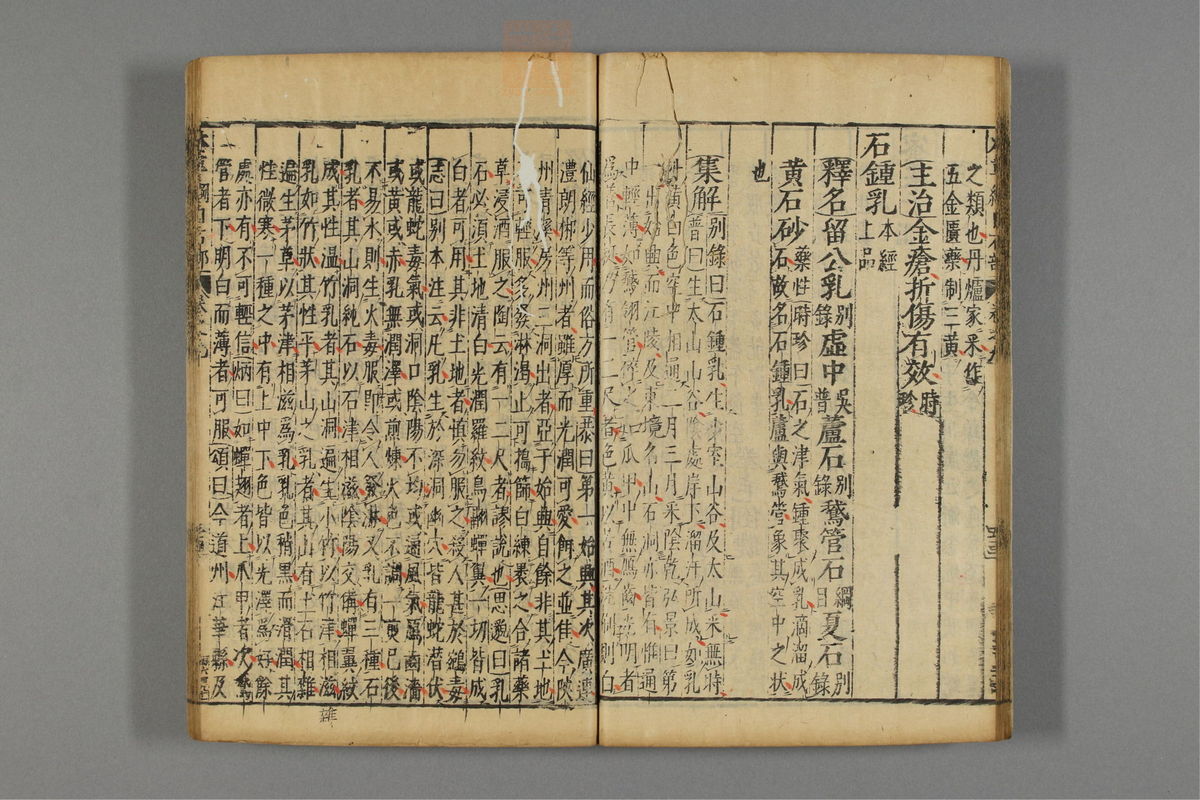 之類也丹爐家采作
五金匱藥制三黃
主治金瘡折傷有效時珍
石鍾乳本經上品
釋名留公乳別錄虛中吳普蘆石別錄鵝管石綱目夏石別錄
黃石砂藥性時珍曰石之津氣鍾聚成乳滴溜成
石故名石鍾乳蘆與鵝管象其空中之狀
也
集解別錄曰石鍾乳生少室山谷及太山采無時
普曰生太山山谷陰處岸下溜汁所成如乳
汁黃白色空中相通二月三月采陰乾弘景曰第
一出始興而江陵及東境名山石洞亦皆有惟通
中輕薄如鵝翎管碎之如爪甲中無鴈齒光明者
為善長挺乃有一二尺者色黃以苦酒洗刷則白
仙經少用而俗方所重恭曰第一始興其次廣連
澧朗郴等州者雖厚而光潤可愛餌之並佳今陝
州清溪房州三洞出者亞于始興自餘非其土地
不可輕服多發淋渴止可擣篩白練裹之合諸藥
草浸酒服之陶云有一二尺者謬說也思邈曰乳
石必須土地清白光潤羅紋鳥翮蟬翼一切皆成
白者可用其非土地者慎勿服之殺人甚於鴆毒
志曰別本注云凡乳生於深洞幽穴皆龍蛇潛伏
或龍蛇毒氣或洞口陰陽不均或通風氣鴈齒澀
或黃或赤乳無潤澤或煎煉火色不調一煎已後
不易水則生火毒服即令人發淋又乳有三種石
乳者其山洞純石以石津相滋陰陽交備蟬翼紋
成其性溫竹乳者其山洞遍生小竹以竹津相滋
乳如竹狀其性平茅山之乳者其山有土石相雜
遍生茅草以茅津相滋為乳乳色稍黑而滑潤其
性微寒一種之中有上中下色皆以光澤為好餘
處亦有不可輕信炳曰如蟬翅者上爪甲者次鵝
管者下明白而薄者可服頌曰今道州江華縣及
雜